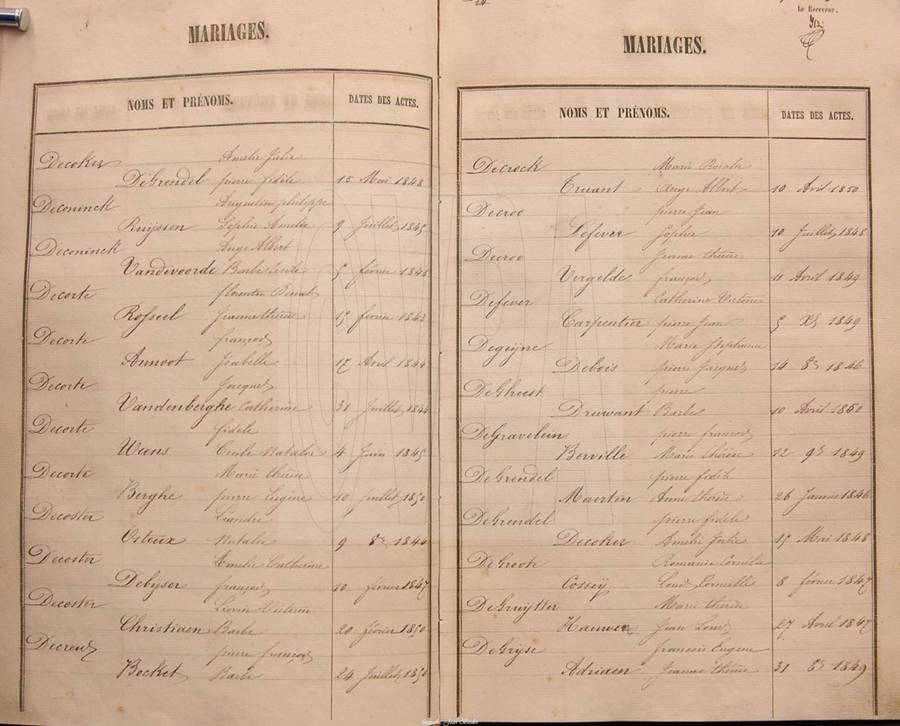 MARIAGES.
NOMS ET PRÉNOMS. DATES DES ACTES.
Decoker Amelie Julie
DeGrendel pierre fidèle 15 Mai 1848
Deconinck Augustin philippe
Ruijssen Sophie Amelie 9 Juillet 1845
Deconinck Ange Albert
Vandevoorde Barbe Cecile 5 février 1846
Decorte florentin Benoit
Rosseel Jeanne thérèse 15 février 1843
Decorte françois
Annoot Isabelle 17 Avril 1844
Decorte Jacques
Vandenberghe Catherine 31 Juillet 1844
Decorte fidele
Wiens Cecile Natalie 4 Juin 1845
Decorte Marie thérèse
Berghe pierre Eugène 10 juillet 1850
Decoster Léandre
Osteux Natalie 9 8re 1844
Decoster Emelie Catherine
Debyser françois 10 février 1847
Decoster Liévin
Christiaen Barbe 20 février 1850
Decreus pierre françois
Becket Barbe 24 Juillet 1850
Le Receveur,
MARIAGES.
NOMS ET PRÉNOMS. DATES DES ACTES.
Decrock Marie Rosalie
Truant Ange Albert 10 Avril 1850
Decroo pierre Jean
Lefever Sophie 10 Juillet 1848
Decroo Jeanne thérèse
Vergelde françois 11 Avril 1849
Defever Catherine Victoire
Carpentier pierre Jean 5 Xre 1849
Degeijne Marie Stephanie
Debois pierre Jacques 14 8re 1846
DeGheest pierre
Druwant Barbe 10 Avril 1850
DeGravelein pierre françois
Berville Marie thérèse 12 9re 1849
DeGrendel pierre fidèle
Maerten Anne thérèse 26 Janvier 1846
DeGrendel pierre fidele
Decoker Amélie Julie 15 Mai 1848
DeGrock Romanie Cornélie
Cossey Louis Corneille 8 février 1847
DeGruytter Marie thérèse
Hauwen Jean Louis 27 Avril 1847
DeGryse francois Eugene
Adriaen Jeanne thérèse 31 1849